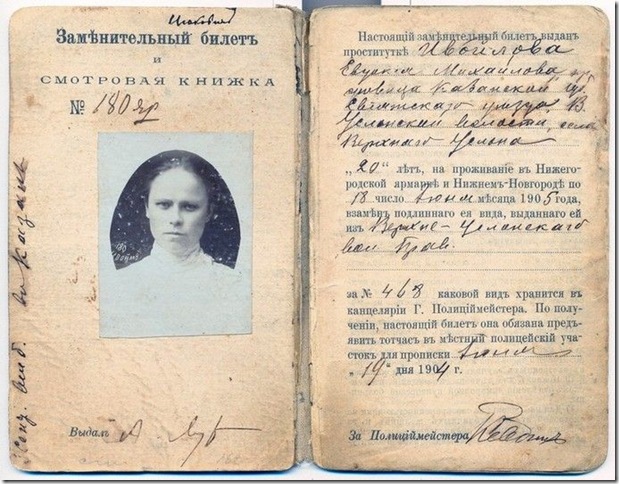 Замѣнительный билетъ
и
СМОТРОВАЯ КНИЖКА
№ 180 яр
Выдалъ
Настоящій замѣнительный билетъ выданъ
проституткѣ
Михайлова
Казанской губ.
уѣзда, В.
Услонской волости, села
Верхняго Услона
„20" лѣтъ, на проживаніе въ Нижего-
родской ярмаркѣ и Нижнемъ-Новгородѣ по
18 число Іюня мѣсяца 1905 года,
взамѣнъ подлиннаго ея вида, выданнаго ей
изъ Верхне-Услонскаго
вол. Прав.
за № 468 каковой видъ хранится въ
канцеляріи Г. Полиціймейстера. По полу-
ченіи, настоящій билетъ она обязана предъ-
явить тотчасъ въ мѣстный полицейскій уча-
стокъ для прописки Іюня
„19" дня 1904 г.
За Полиціймейстера